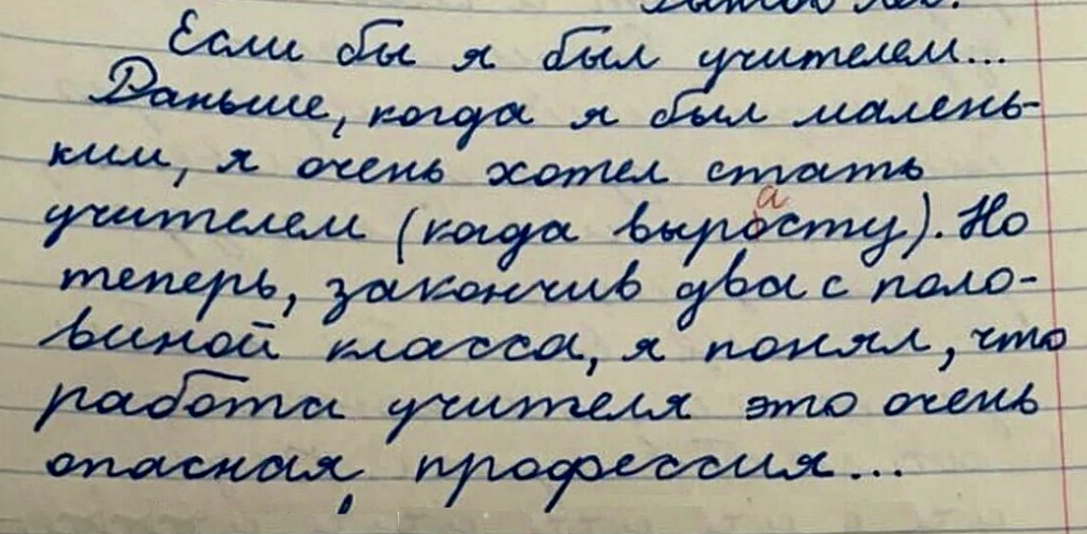 Если бы я был учителем...
Раньше, когда я был малень-
ким, я очень хотел стать
а
учителем (когда выросту). Но
теперь, закончив два с поло-
виной класса, я понял, что
работа учителя это очень
опасная профессия...